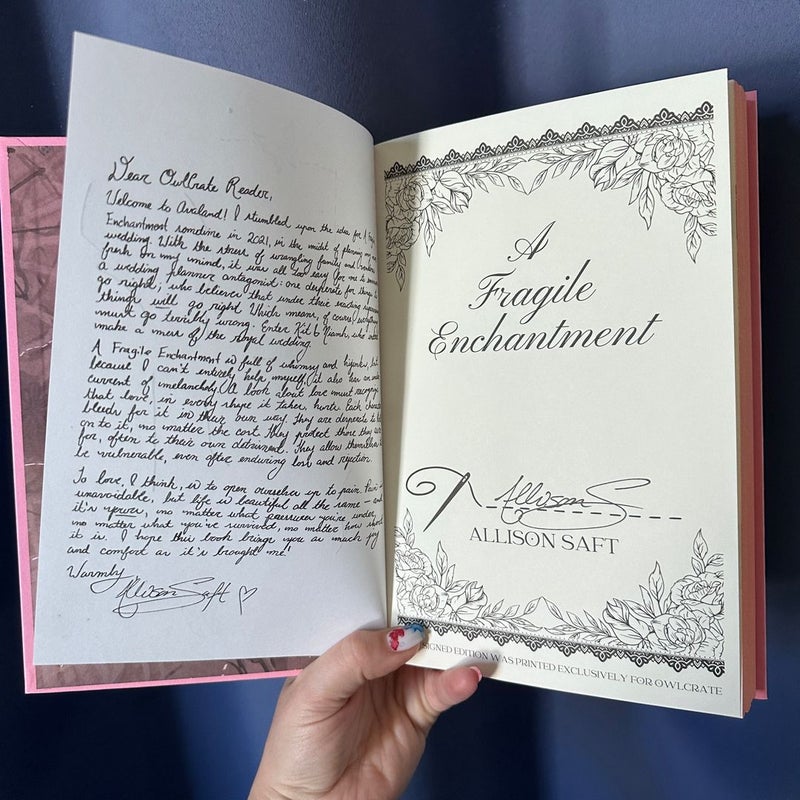 Dear OwlCrate Reader,
Welcome to Avaland! I stumbled upon the idea for A
Enchantment sometime in 2021, in the midst of planning my
wedding. With the stress of wrangling family and
fresh on my mind, it was all too easy for me to
a wedding planner antagonist: one desperate for things to
go right, who believes that under their exacting
things will go right. Which means, of course, everything
must go terribly wrong. Enter Kit & Niamh, who
make a mess of the royal wedding.
A Fragile Enchantment is full of whimsy and hijinks, but
because I can't entirely help myself, it also has an
current of melancholy. A book about love must recognize
that love, in every shape it takes, hurts. Each character
bleeds for it in their own way. They are desperate to
on to it, no matter the cost. They protect those they
for, often to their own detriment. They allow themselves
be vulnerable, even after enduring loss and rejection.
To love, I think, is to open ourselves up to pain. Pain is
unavoidable, but life is beautiful all the same — and
it's yours, no matter what pressures you're under,
no matter what you've survived, no matter how short
it is. I hope this book brings you as much joy
and comfort as it's brought me!
Warmly,
Allison Saft
A
Fragile
Enchantment
Allison S
ALLISON SAFT
SIGNED EDITION WAS PRINTED EXCLUSIVELY FOR OWLCRATE